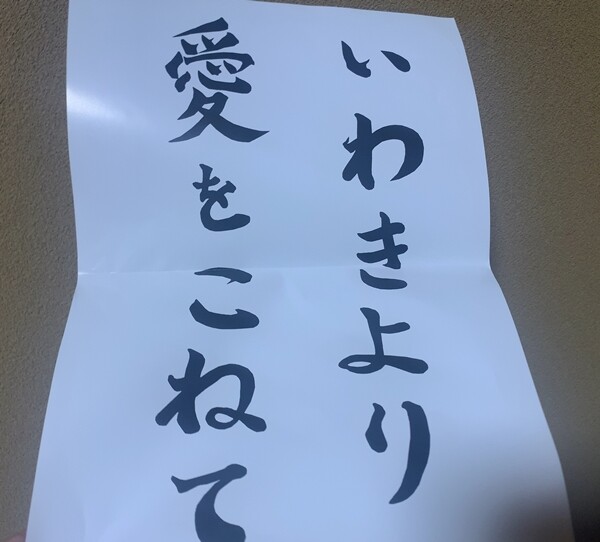 いわきより
愛をこねて